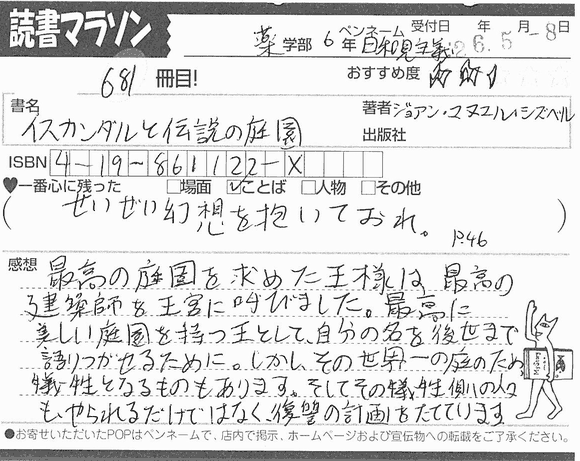 読書マラソン
薬学部 6年 ペンネーム 日和見主義に 受付日 26.年5月-8日
681冊目!
おすすめ度 ☆☆
書名
イスカンダルと伝説の庭園
著者 ジョアン・マヌエル・ジズベル
出版社
ISBN 4-19-861122-X
♥一番心に残った □場面 ☑ことば □人物 □その他
(せいぜい幻想を抱いておれ。 P.46)
感想 最高の庭園を求めた王様は、最高の
建築師を王宮に呼びました。最高に
美しい庭園を持つ王として、自分の名を後世まで
語りつがせるために。しかし、その世界一の庭のため
犠牲となるものもあります。そしてその犠牲側の人々
も、やられるだけではなく、復讐の計画をたてています
●お寄せいただいたPOPはペンネームで、店内で掲示、ホームページおよび宣伝物への転載をご了承ください。